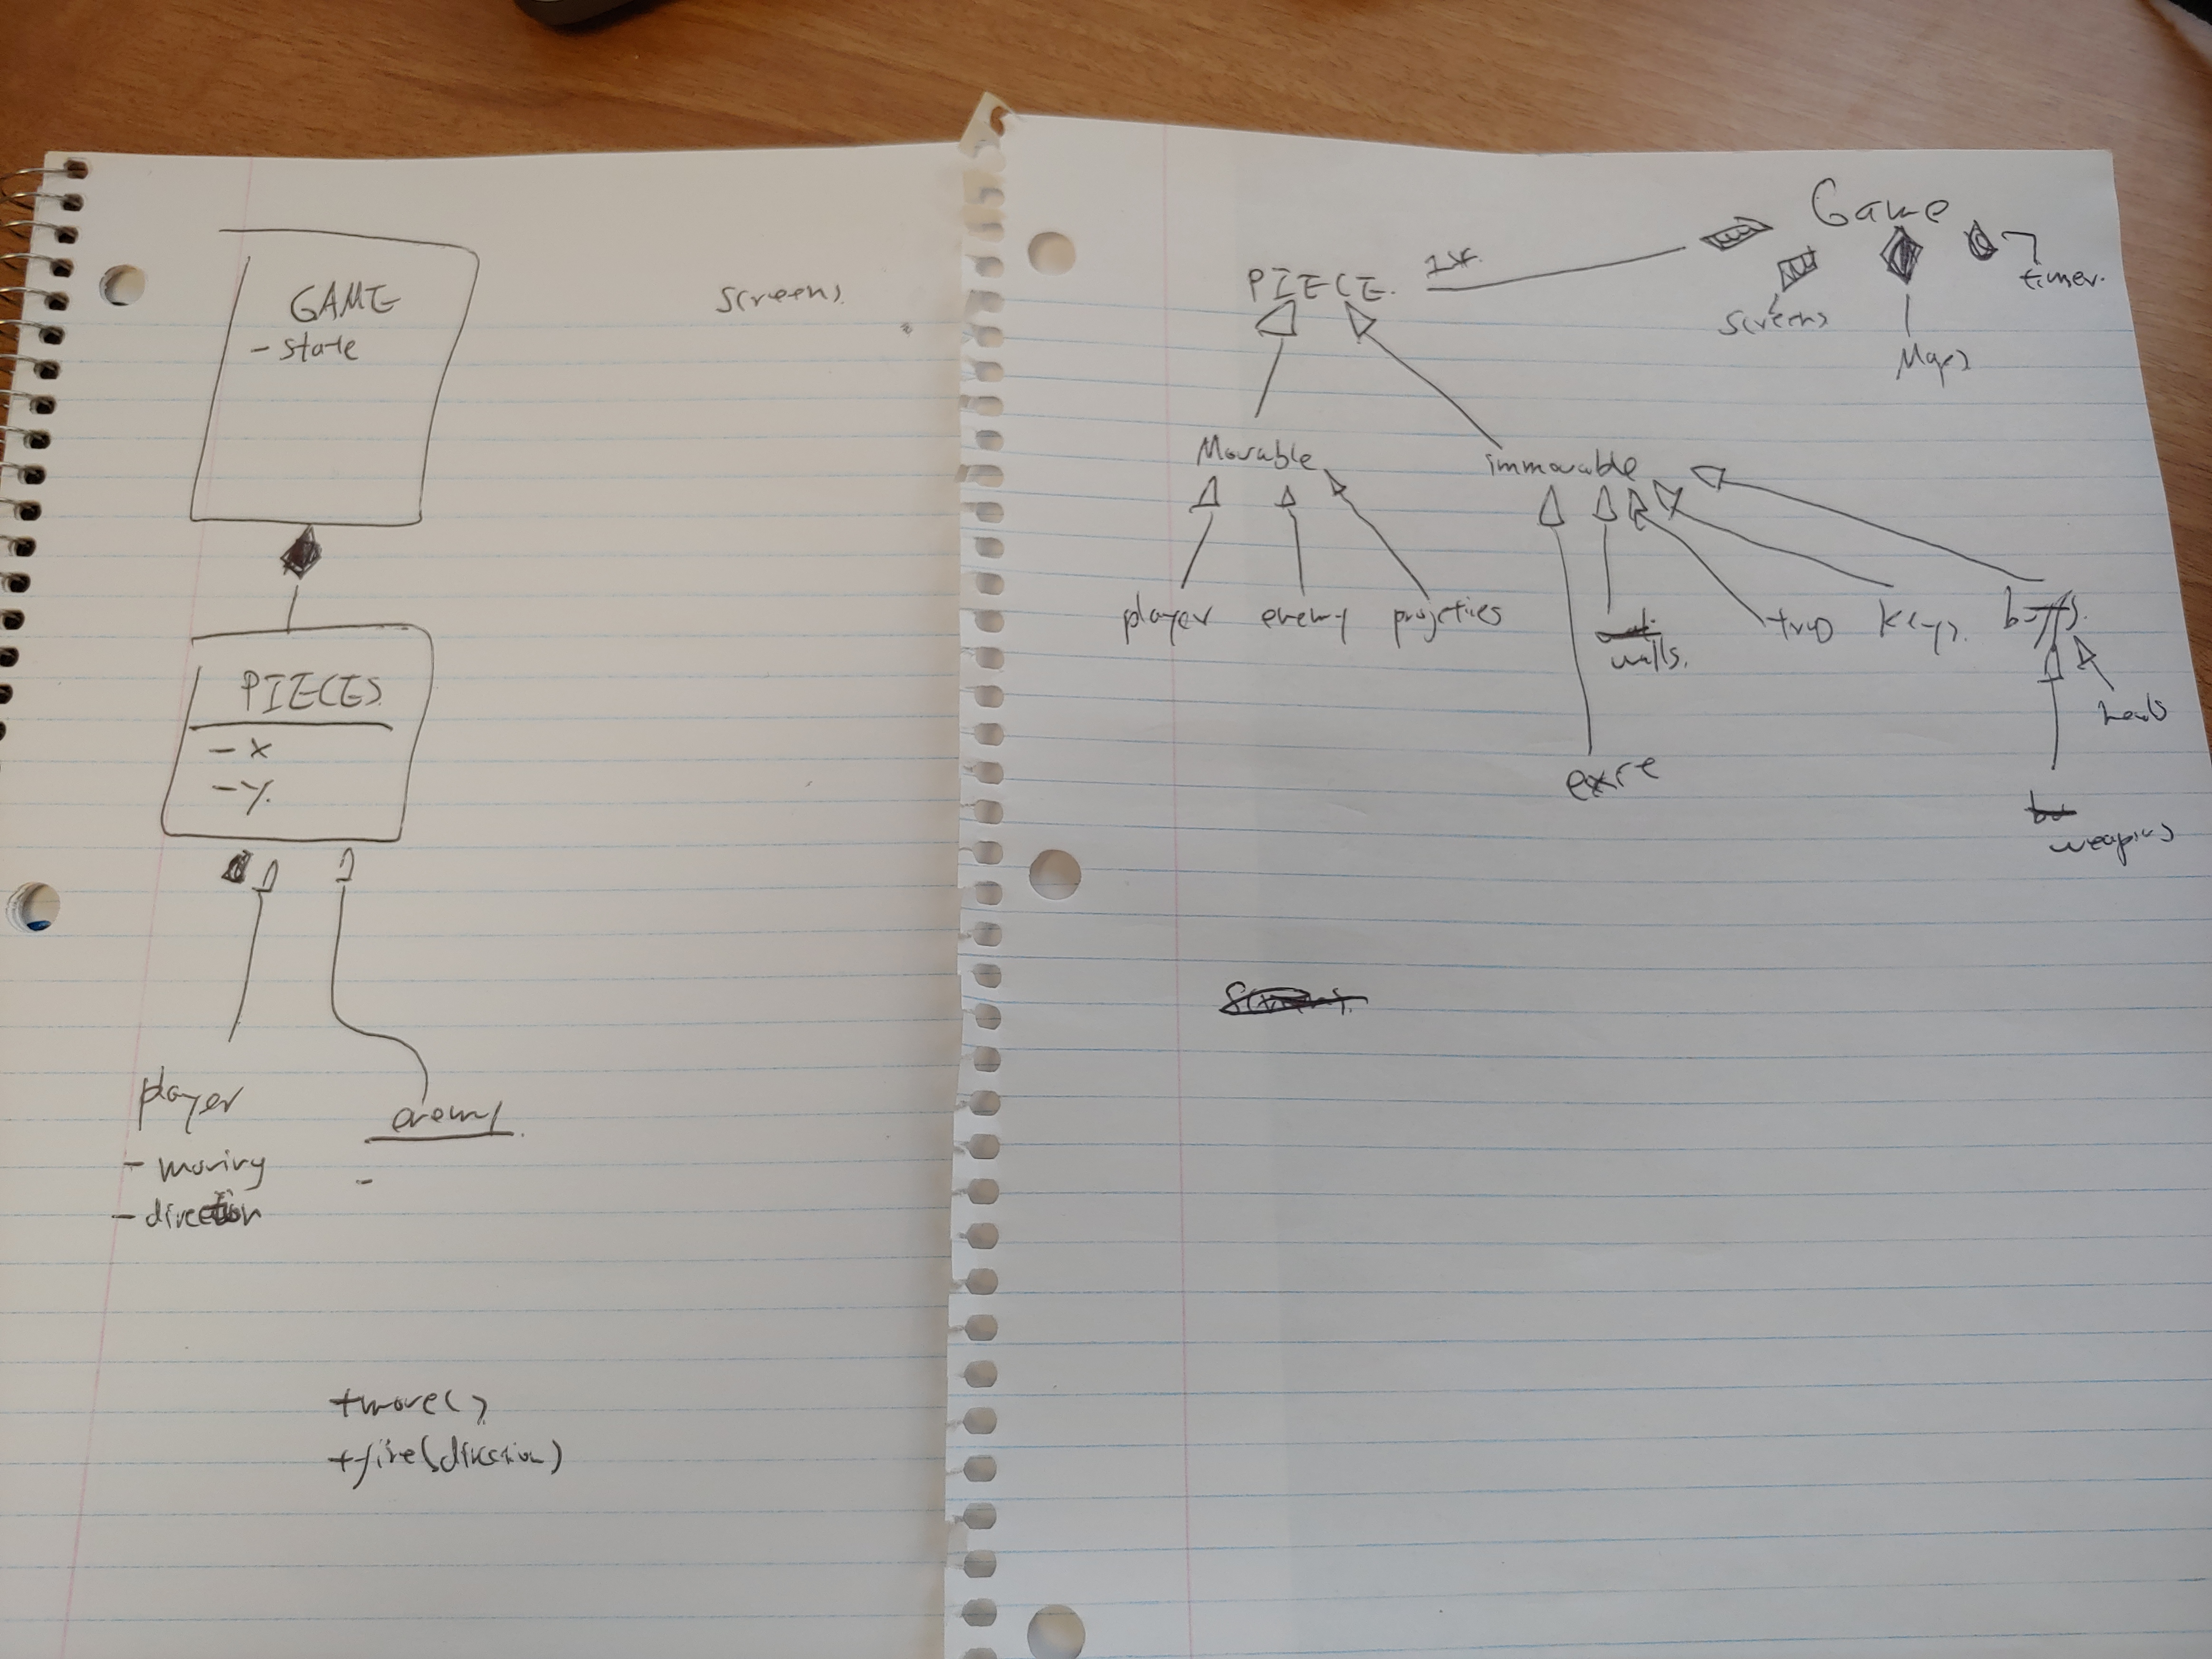 GAME
- state
screens
PIECES
- x
- y.
player
- moving
- direction
enemy
-
+move()
+fire(direction)
Game
PIECE.
1..*
screens
Maps
timer.
Movable
immovable
player
enemy
walls.
keys.
buffs.
weapons